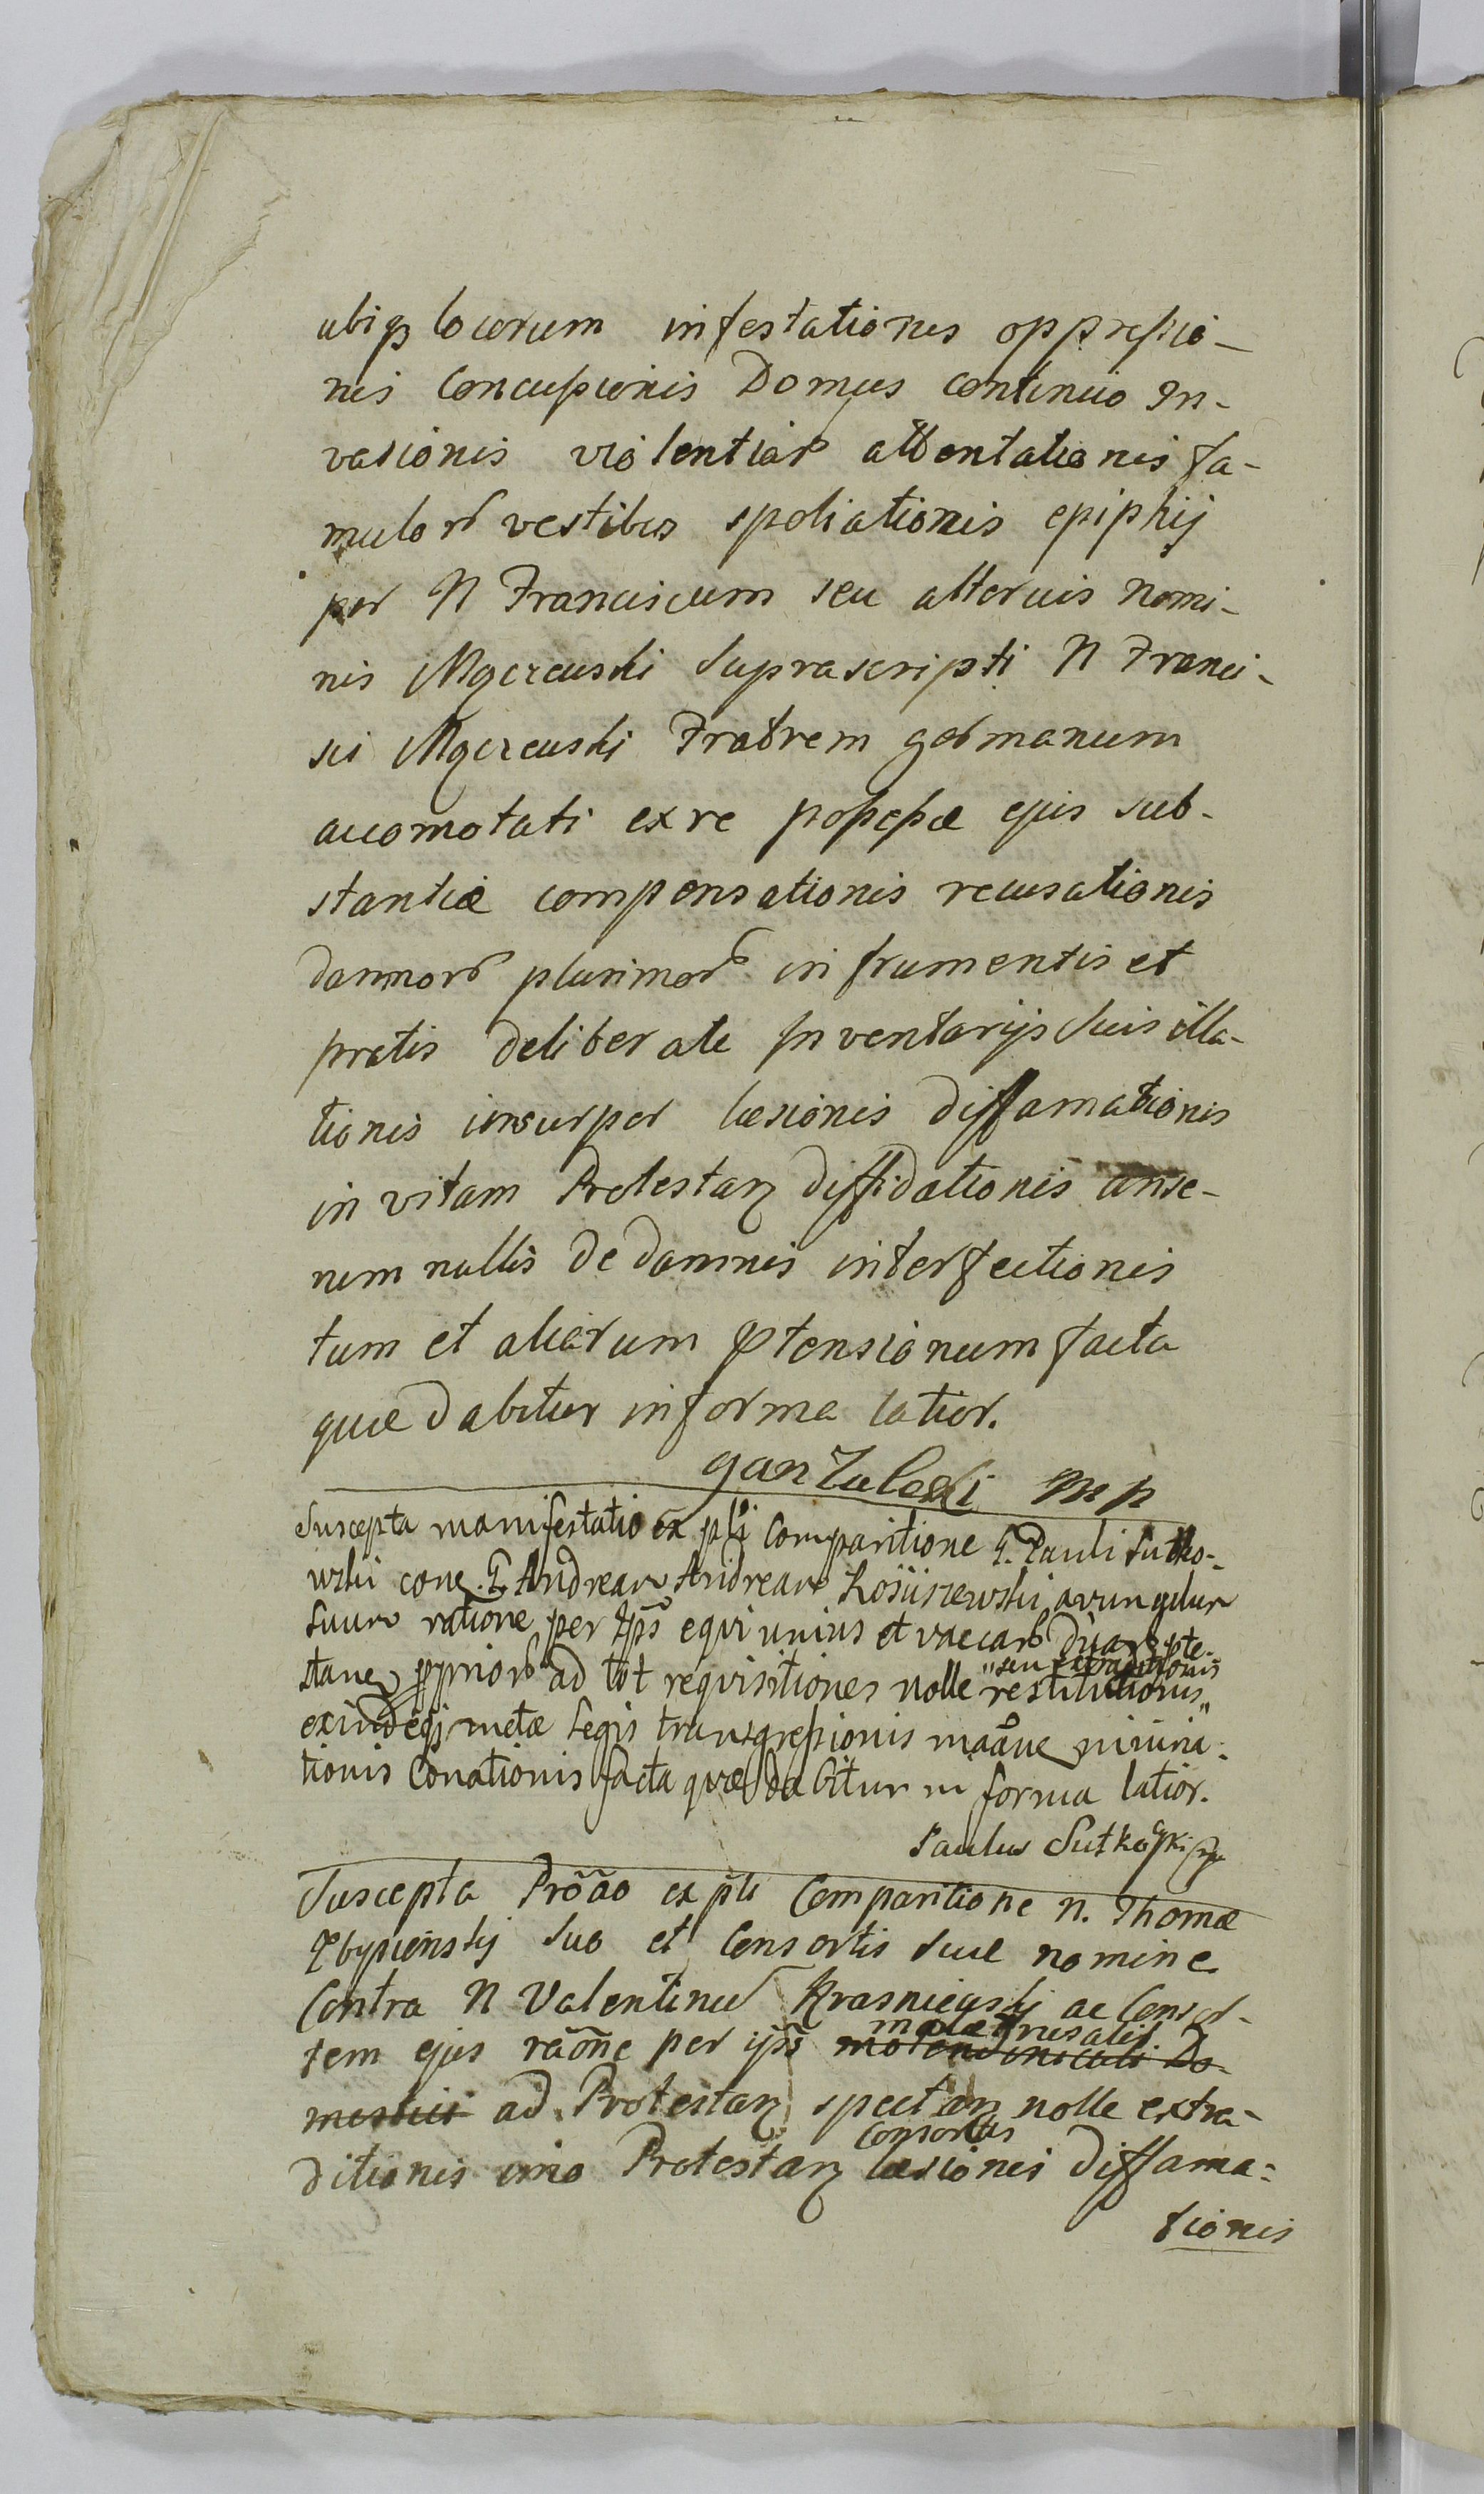 ubiqȝ locorum infestationis oppressio-
nis Concussionis Domus continuo In-
vasionis violentiar attentationis fa-
mulor vestibus spoliationis epiphij
per N Franciscum seu alterius nomi-
nis Mgczewski Suprascripti N Franci-
sci Mgczewski Fratrem germanum
accomotati ex re possessæ ejus sub-
stantiæ compensationis recusationis
Damnor plurimor in frumentis et
pratis deliberate Inventarijs Suis illa-
tionis insuper læsionis diffamationis
in vitam Protestan diffidationis anse-
rum nullis de damnis interfectionis
tum et aliarum ptensionum facta
quæ dabitur in forma latior.
Jan Zaleski mp
Suscepta manifestatio ex pli Comparitione G. Pauli Sutko-
wski con G Andream Andream Kosiiszewski avunqulum
Suum ratione per Ips equi unius et vaccar duar pte-
"seu extraditionis
stan pprior ad tot requisitiones nolle restitutionis"
exindeqȝ metæ Legis transgressionis maave niiuria-
tionis Conationis facta quæ dabitur in forma latior.
Paulus Sutkowski mp
Suscepta Proao ex pli Comparitione N. Thomæ
Zbypienskij Suo et Consortis Suæ nomine
Contra N Valentinum Krasniewskj ac Consor-
molæ trusatilis
tem ejus raone per ips molendiniculi Do-
mestici ad Protestan spectan nolle extra-
Consortis
ditionis imo Protestan læsionis diffama-
tionis